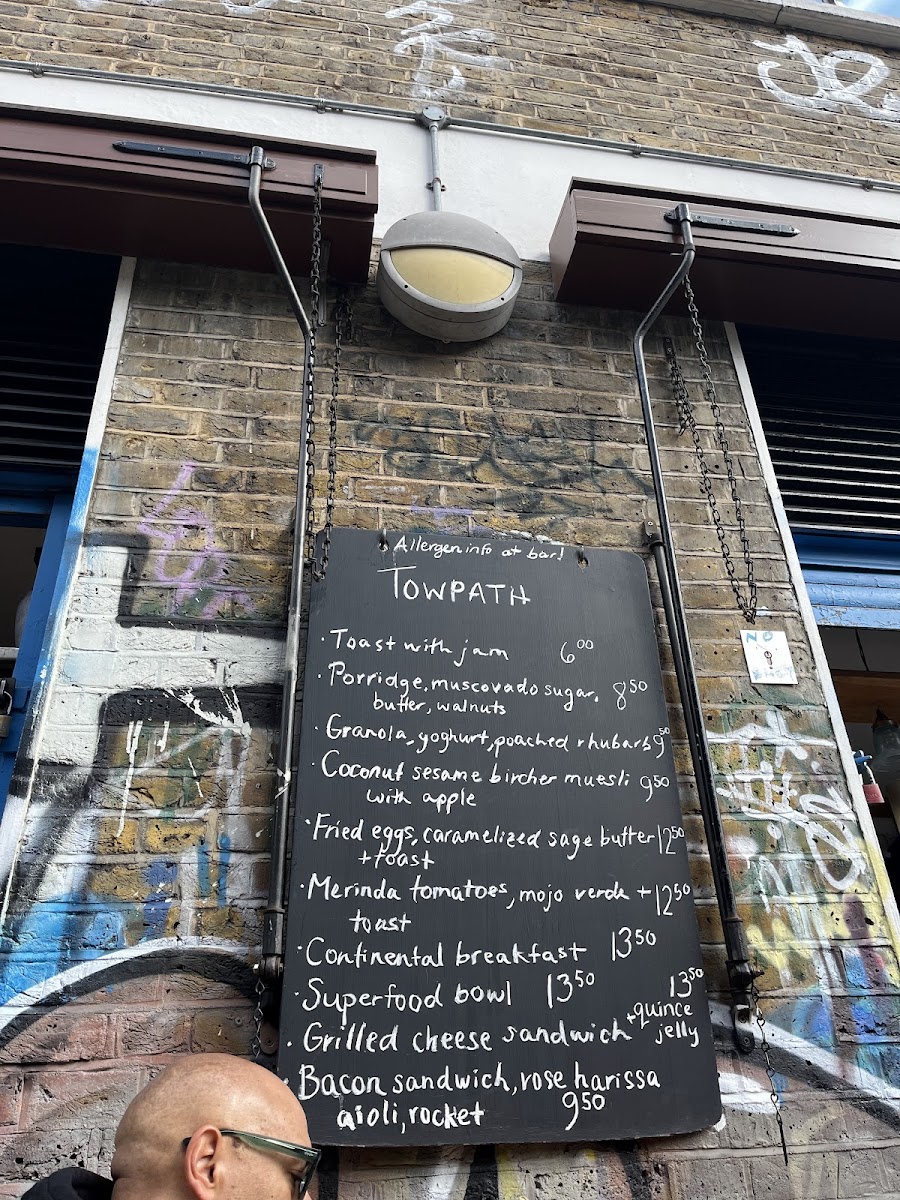 Allergen info at bar!
TOWPATH
· Toast with jam 6.00
· Porridge, muscovado sugar, 8.50
butter, walnuts
· Granola, yoghurt, poached rhubarb 9.50
· Coconut sesame bircher muesli 9.50
with apple
· Fried eggs, caramelized sage butter 12.50
+ toast
· Merinda tomatoes, mojo verde + 12.50
toast
· Continental breakfast 13.50
· Superfood bowl 13.50
· Grilled cheese sandwich + quince jelly 13.50
· Bacon sandwich, rose harissa
aioli, rocket 9.50
NO